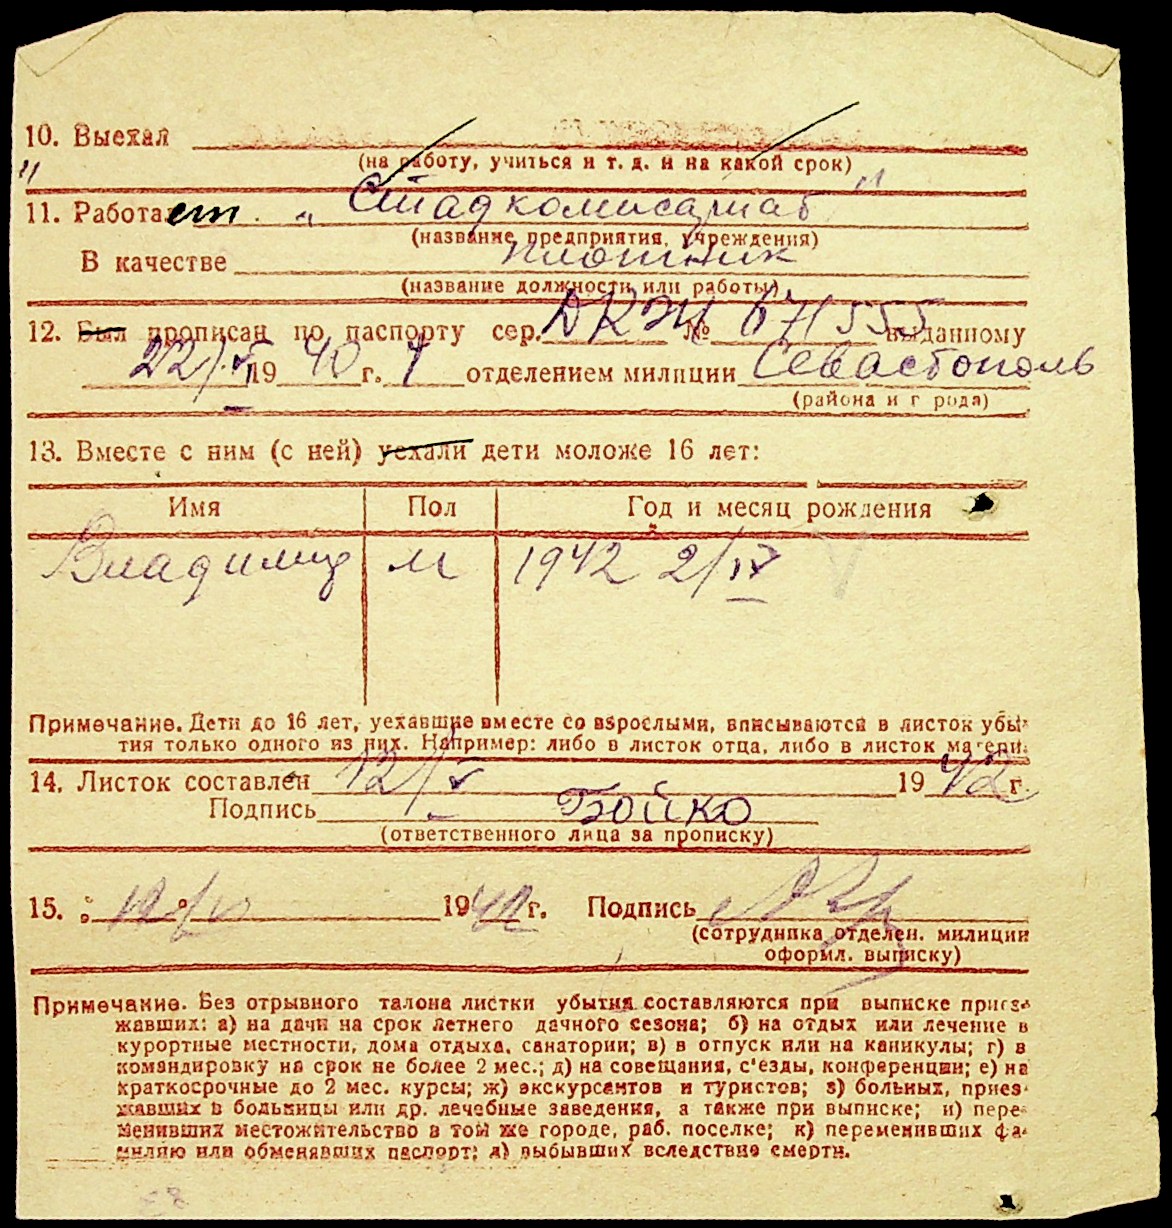 10. Выехал
(на работу, учиться и т. д. и на какой срок)
11. Работает „Стадкомисариат"
(название предприятия, учреждения)
В качестве плотник
(название должности или работы)
12. Был прописан по паспорту сер. № 671555 выданному
22/V 1940 г. 1 отделением милиции Севастополь
(района и г рода)
13. Вместе с ним (с ней) уехали дети моложе 16 лет:
Имя Пол Год и месяц рождения
Владимир м 1942 2/IV
Примечание. Дети до 16 лет, уехавшие вместе со взрослыми, вписываются в листок убы-
тия только одного из них. Например: либо в листок отца, либо в листок матери.
14. Листок составлен 12/V 1942 г.
Подпись Бойко
(ответственного лица за прописку)
15. 1942 г. Подпись
(сотрудника отделен. милиции
оформл. выписку)
Примечание. Без отрывного талона листки убытия составляются при выписке приез-
жавших: а) на дачи на срок летнего дачного сезона; б) на отдых или лечение в
курортные местности, дома отдыха, санатории; в) в отпуск или на каникулы; г) в
командировку на срок не более 2 мес.; д) на совещания, с'езды, конференции; е) на
краткосрочные до 2 мес. курсы; ж) экскурсантов и туристов; з) больных, приез-
жавших в больницы или др. лечебные заведения, а также при выписке; и) пере-
менивших местожительство в том же городе, раб. поселке; к) переменивших фа-
милию или обменявших паспорт; л) выбывших вследствие смерти.